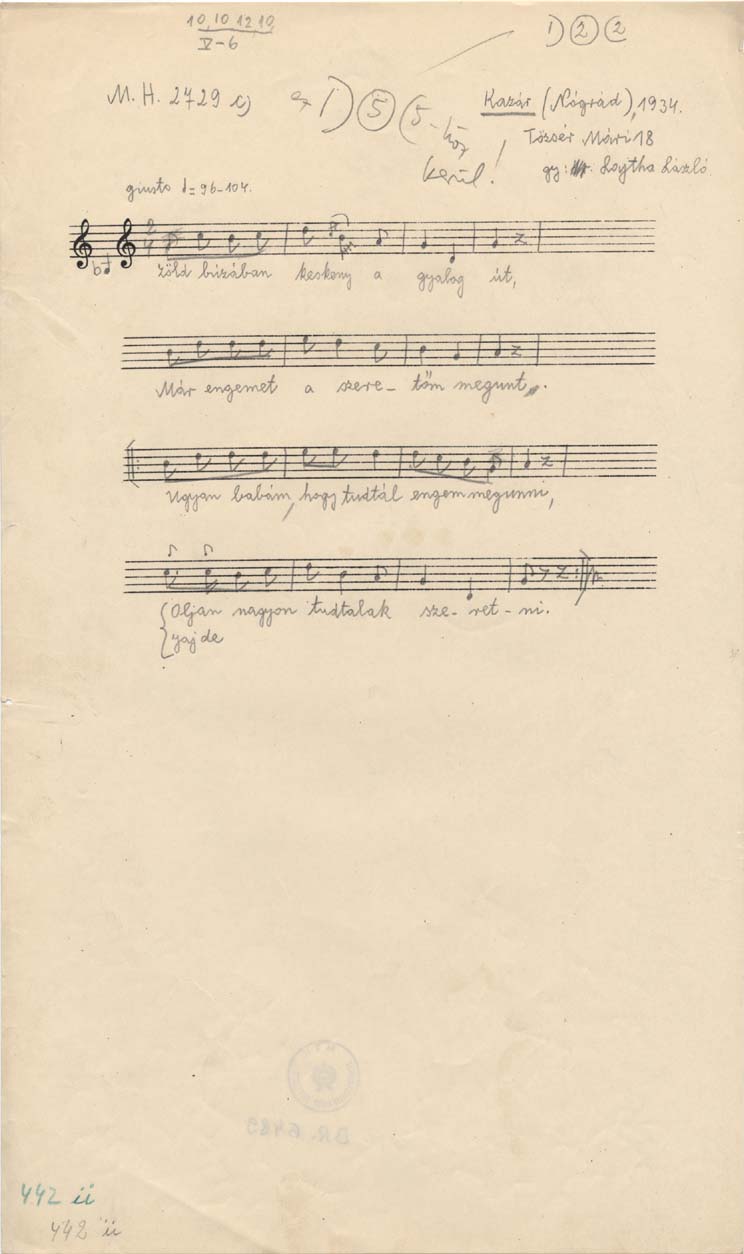 10, 10 12 10
V-6
1) 2 (2
M. H. 2729 c) 1) 5 (5-höz
kerül!
Kazár (Nógrád), 1934.
Tőzsér Mári 18
gy: Lajtha László
giusto = 96-104.
2
4
zöld búzában keskeny a gyalog út,
Már engemet a szere- tőm megunt.
Ugyan babám, hogy tudtál engem megunni,
Oljan nagyon tudtalak sze- ret - ni.
jaj de
BR. 6489
442 ii
442 ii